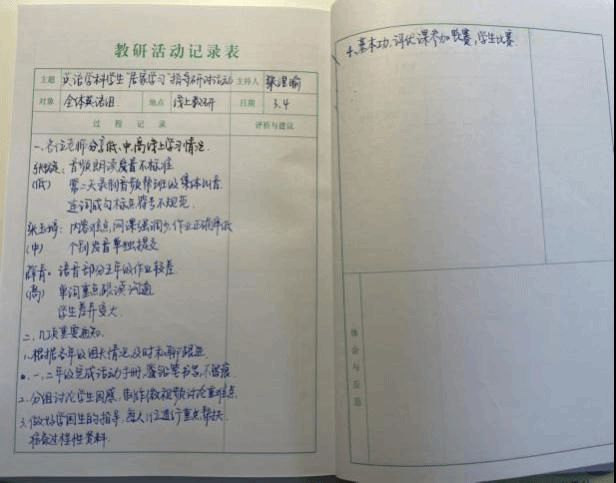 教研活动记录表
主题 英语学科学生"居家学习"指导研讨活动 主持人
对象 全体英语组 地点 线上教研 日期 3.4
过程记录 评析与建议
一、各位老师分享低、中、高线上学习情况.
音频朗读发音不标准
(低) 第二天录制音频帮班级集体纠音
连词成句标点符号不规范
张玉婷: 内容难点,网课强调,作业正确率低
(中) 个别发音单独提交
语音部分五年级作业较差
(高) 单词重点跟读沟通
学生差异变大
二、几项重要通知.
1.根据各年级组长情况,及时私聊跟进
一、二年级完成活动手册,铅笔书写,不留痕
2.分组讨论学生困惑,制作微视频讨论重难点
3.做好学困生的指导,每人1位进行重点帮扶.
准备过程性资料.
4.基本功,评优课参加竞赛,学生比赛.
体会与反思